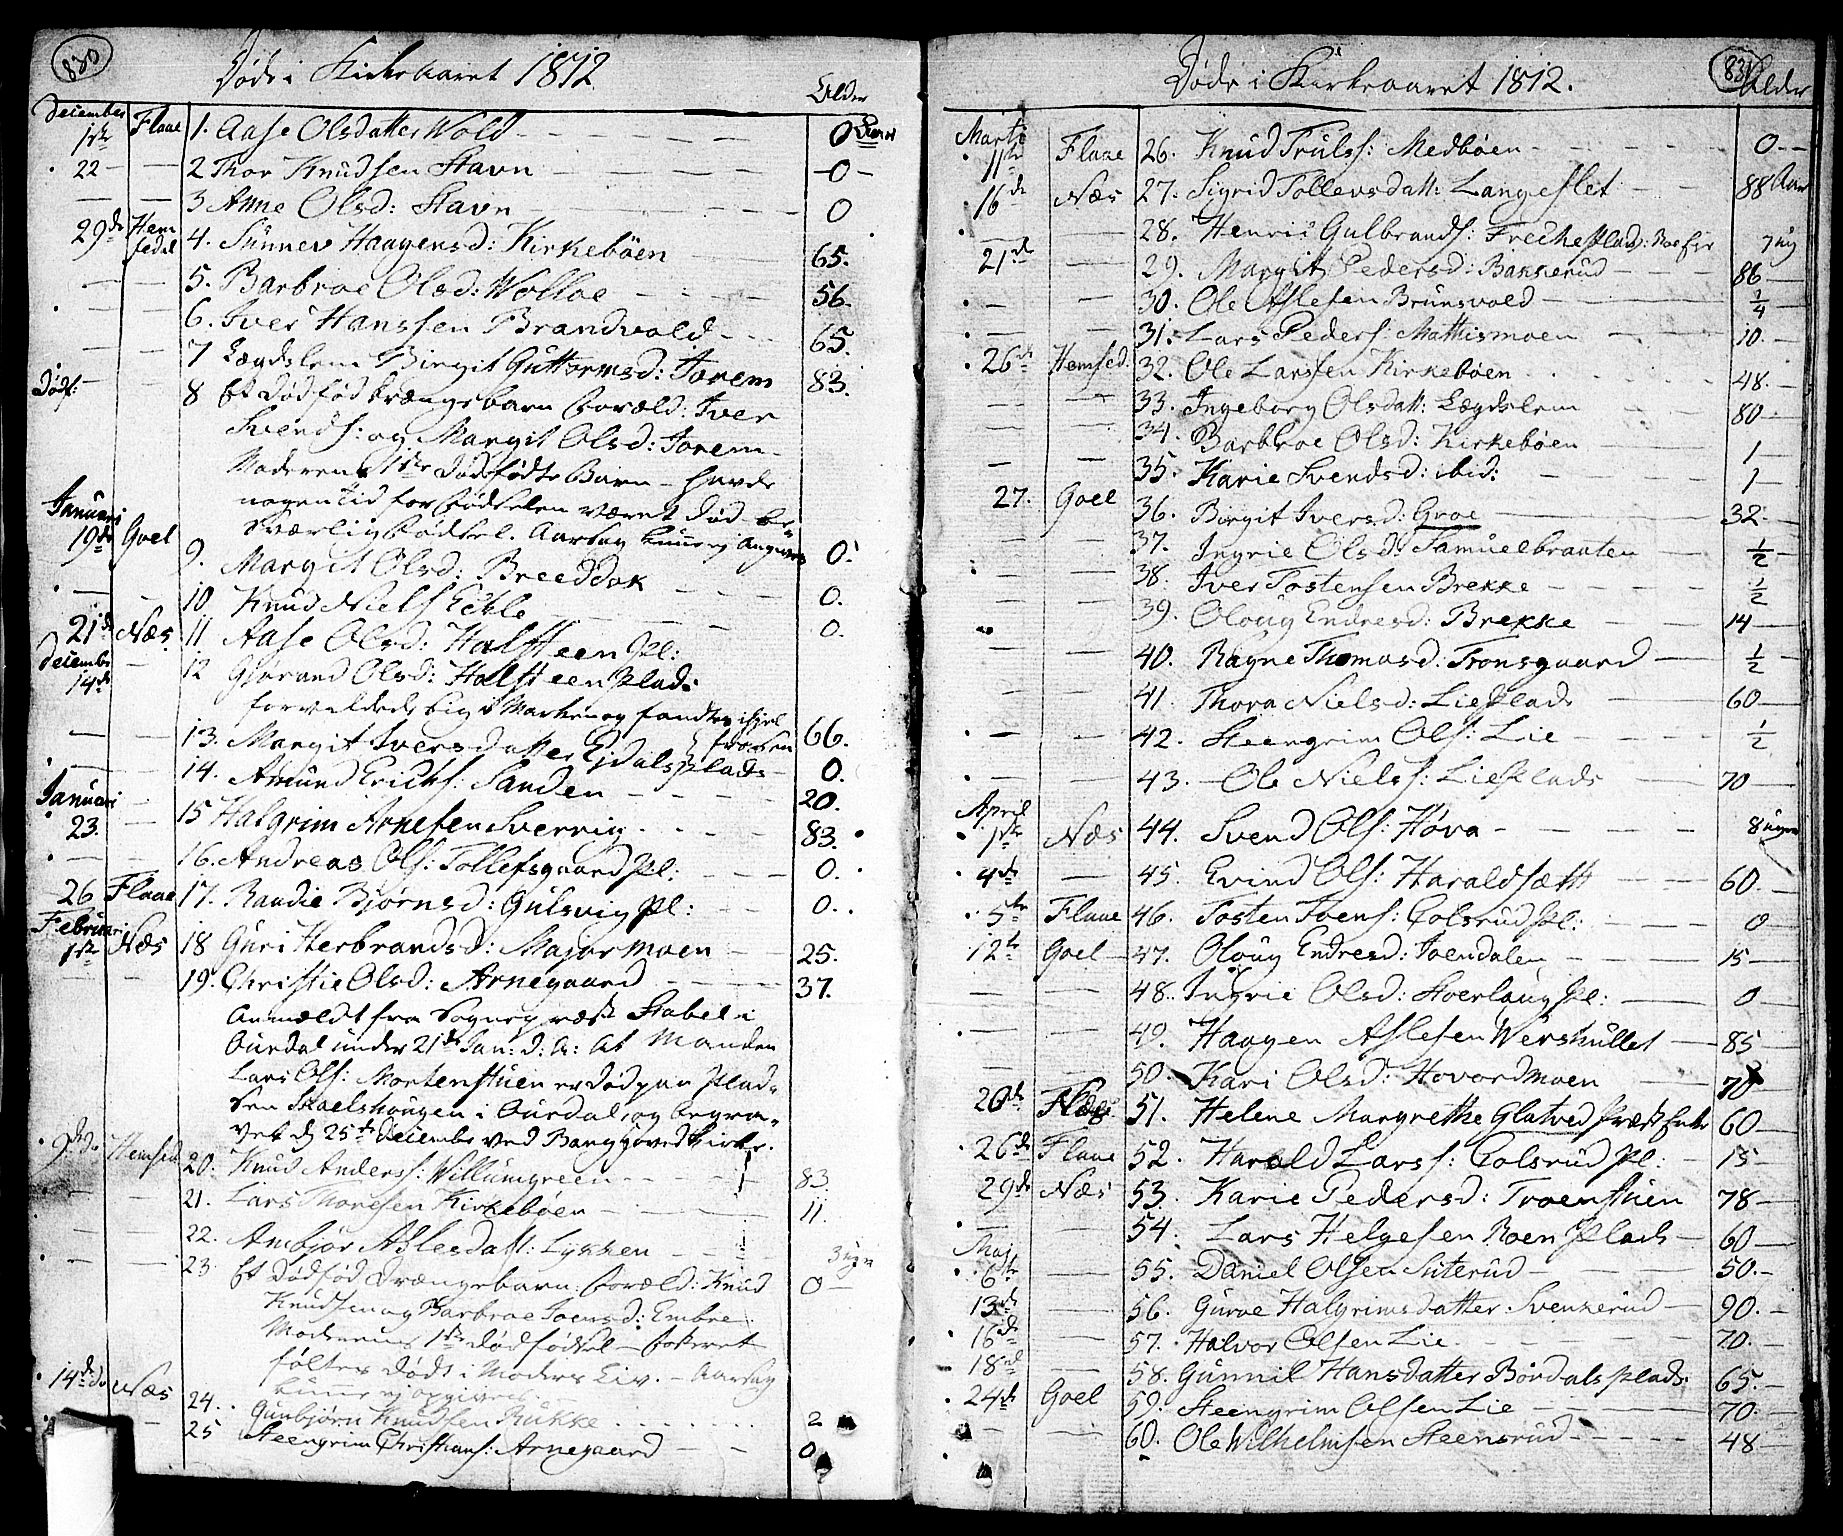 830
Døde i Kirkeaaret 1812
Alder
December
1ste Flaae 1. Aase Olsdatter Wold 0
22 2 Thor Knudsen Stavn 0
3 Anne Olsd: Stavn 0
29de Hemsedal 4. Sünnev Haagensd: Kirkebøen 65.
5. Barbroe Olsd: Wolloe 56.
6. Iver Hanssen Brandvold 65.
7 Lægdslem Birgit Guttormsd: Torem 83.
Dødf: 8 Et Dødfød Drængebarn Foræld: Iver
Svends: og Margit Olsd: Torem
Moderens 1ste Dødfødte Barn – havde
nogen Tid for Fødselen været død
sværlig Fødsel. Aarsag kune ej angives
Januari
19de Goel 9. Margit Olsd: Breeddok 0.
10. Knud Niels: Eckle 0.
21de Næs 11 Aase Olsd: Halsteen Pl: 0.
December
14de 12 Gjørand Olsd: Halsteen Plads
forvildede sig i Marken og fandtes ihiel
frosen 66.
13. Margit Iversdatter Ejdals Plads 0.
14. Amund Erichs: Sanden 20.
Januari
23. 15 Halgrim Arnesen Svervig 83.
16. Andreas Ols: Tollefsgaard Pl: 0.
26 Flaae 17. Randie Bjørnsd: Gulsvig Pl: 0.
Februari
1ste Næs 18 Guri Herbrandsd: Majormoen 25.
19. Christie Olsd: Arnegaard 37.
Anmeldt fra Sognepræst Stabel i
Ourdal under 21de Jan: d: A: at Manden
Lars Ols: Mortenstuen er død paa Plad-
sen Skoelshougen i Ourdal, og begra-
vet d 25de Decembr ved Bang Hovedkirke.
9de do Hemsed 20. Knud Anderss: Willumgreen 83
21. Lars Thoresen Kirkebøen 11.
22. Ambjør Aslesdatt: Lykken 3 uger
23. Et Dødfød Drængebarn: Foræld: Knud 0
Knudsen og Barbroe Toensd: Embre
Moderens 1ste dødfødsel – Fosteret
føltes Dødt i Moders Liv. – Aarsag
kune ej opgives.
14de do Næs 24. Gunbjørn Knudsen Rukke 2
25 Steengrim Christians: Arnegaard 0
831
Døde i Kirkeaaret 1812.
Alder
Marti
11te Flaae 26. Knud Truls: Medbøen 0
16de Næs 27. Sigrid Tollevsdatt: Langeslet 88 Aar
28. Henric Gulbrands: Frechs Plads: 7 ug
21de 29. Margit Pedersd: Bakkerud 86
30. Ole Aslesen Brunsvold 1/4
31. Lars Peders: Mathismoen 10.
26de Hemsed. 32. Ole Larssen Kirkebøen 48.
33. Ingeborg Olsdatt: Lægdslem 80
34. Barbroe Olsd: Kirkebøen 1
35. Karie Svendsd: ibid: 1
27. Goel 36. Birgit Iversd: Groe 32
37. Ingrie Olsd: Samuelbraaten 1/2
38. Iver Tostensen Brekke 1/2
39. Oloug Endresd: Brekke 14
40. Ragne Thomasd: Tronsgaard 1/2
41. Thora Nielsd: Lie Plads 60
42. Steengrim Ols: Lie 1/2
43. Ole Niels: Lie Plads 70
April
1ste Næs 44. Svend Ols: Høva 8 uger
4de 45. Evind Ols: Haraldsætt 60.
5te Flaae 46. Tosten Svens: Colsrud Pl: 0
12te Goel 47. Oloug Endresd: Toendalen 15
48. Ingrie Olsd: Stoerlaug Pl: 0
49. Haagen Aslesen Wershullet 85
50. Kari Olsd: Hovordmoen 70
20de Næs 51. Helene Margrethe Glatved Præst Enke 60
26de Flaae 52. Harald Larss: Colsrud Pl: 15
29de Næs 53. Karie Pedersd: Troenstuen 78
54. Lars Helgesen Roen Plads 60
Maj
6te 55. Daniel Olsen Suterud 50.
13de 56. Guroe Halgrimsdatter Svenkerud 90.
16de 57. Halvor Olsen Lie 70.
18de 58. Gunnil Hansdatter Børdals Plads 65.
24de Goel 59. Steengrim Olsen Lie 70.
60. Ole Wilhelmsen Steensrud 48